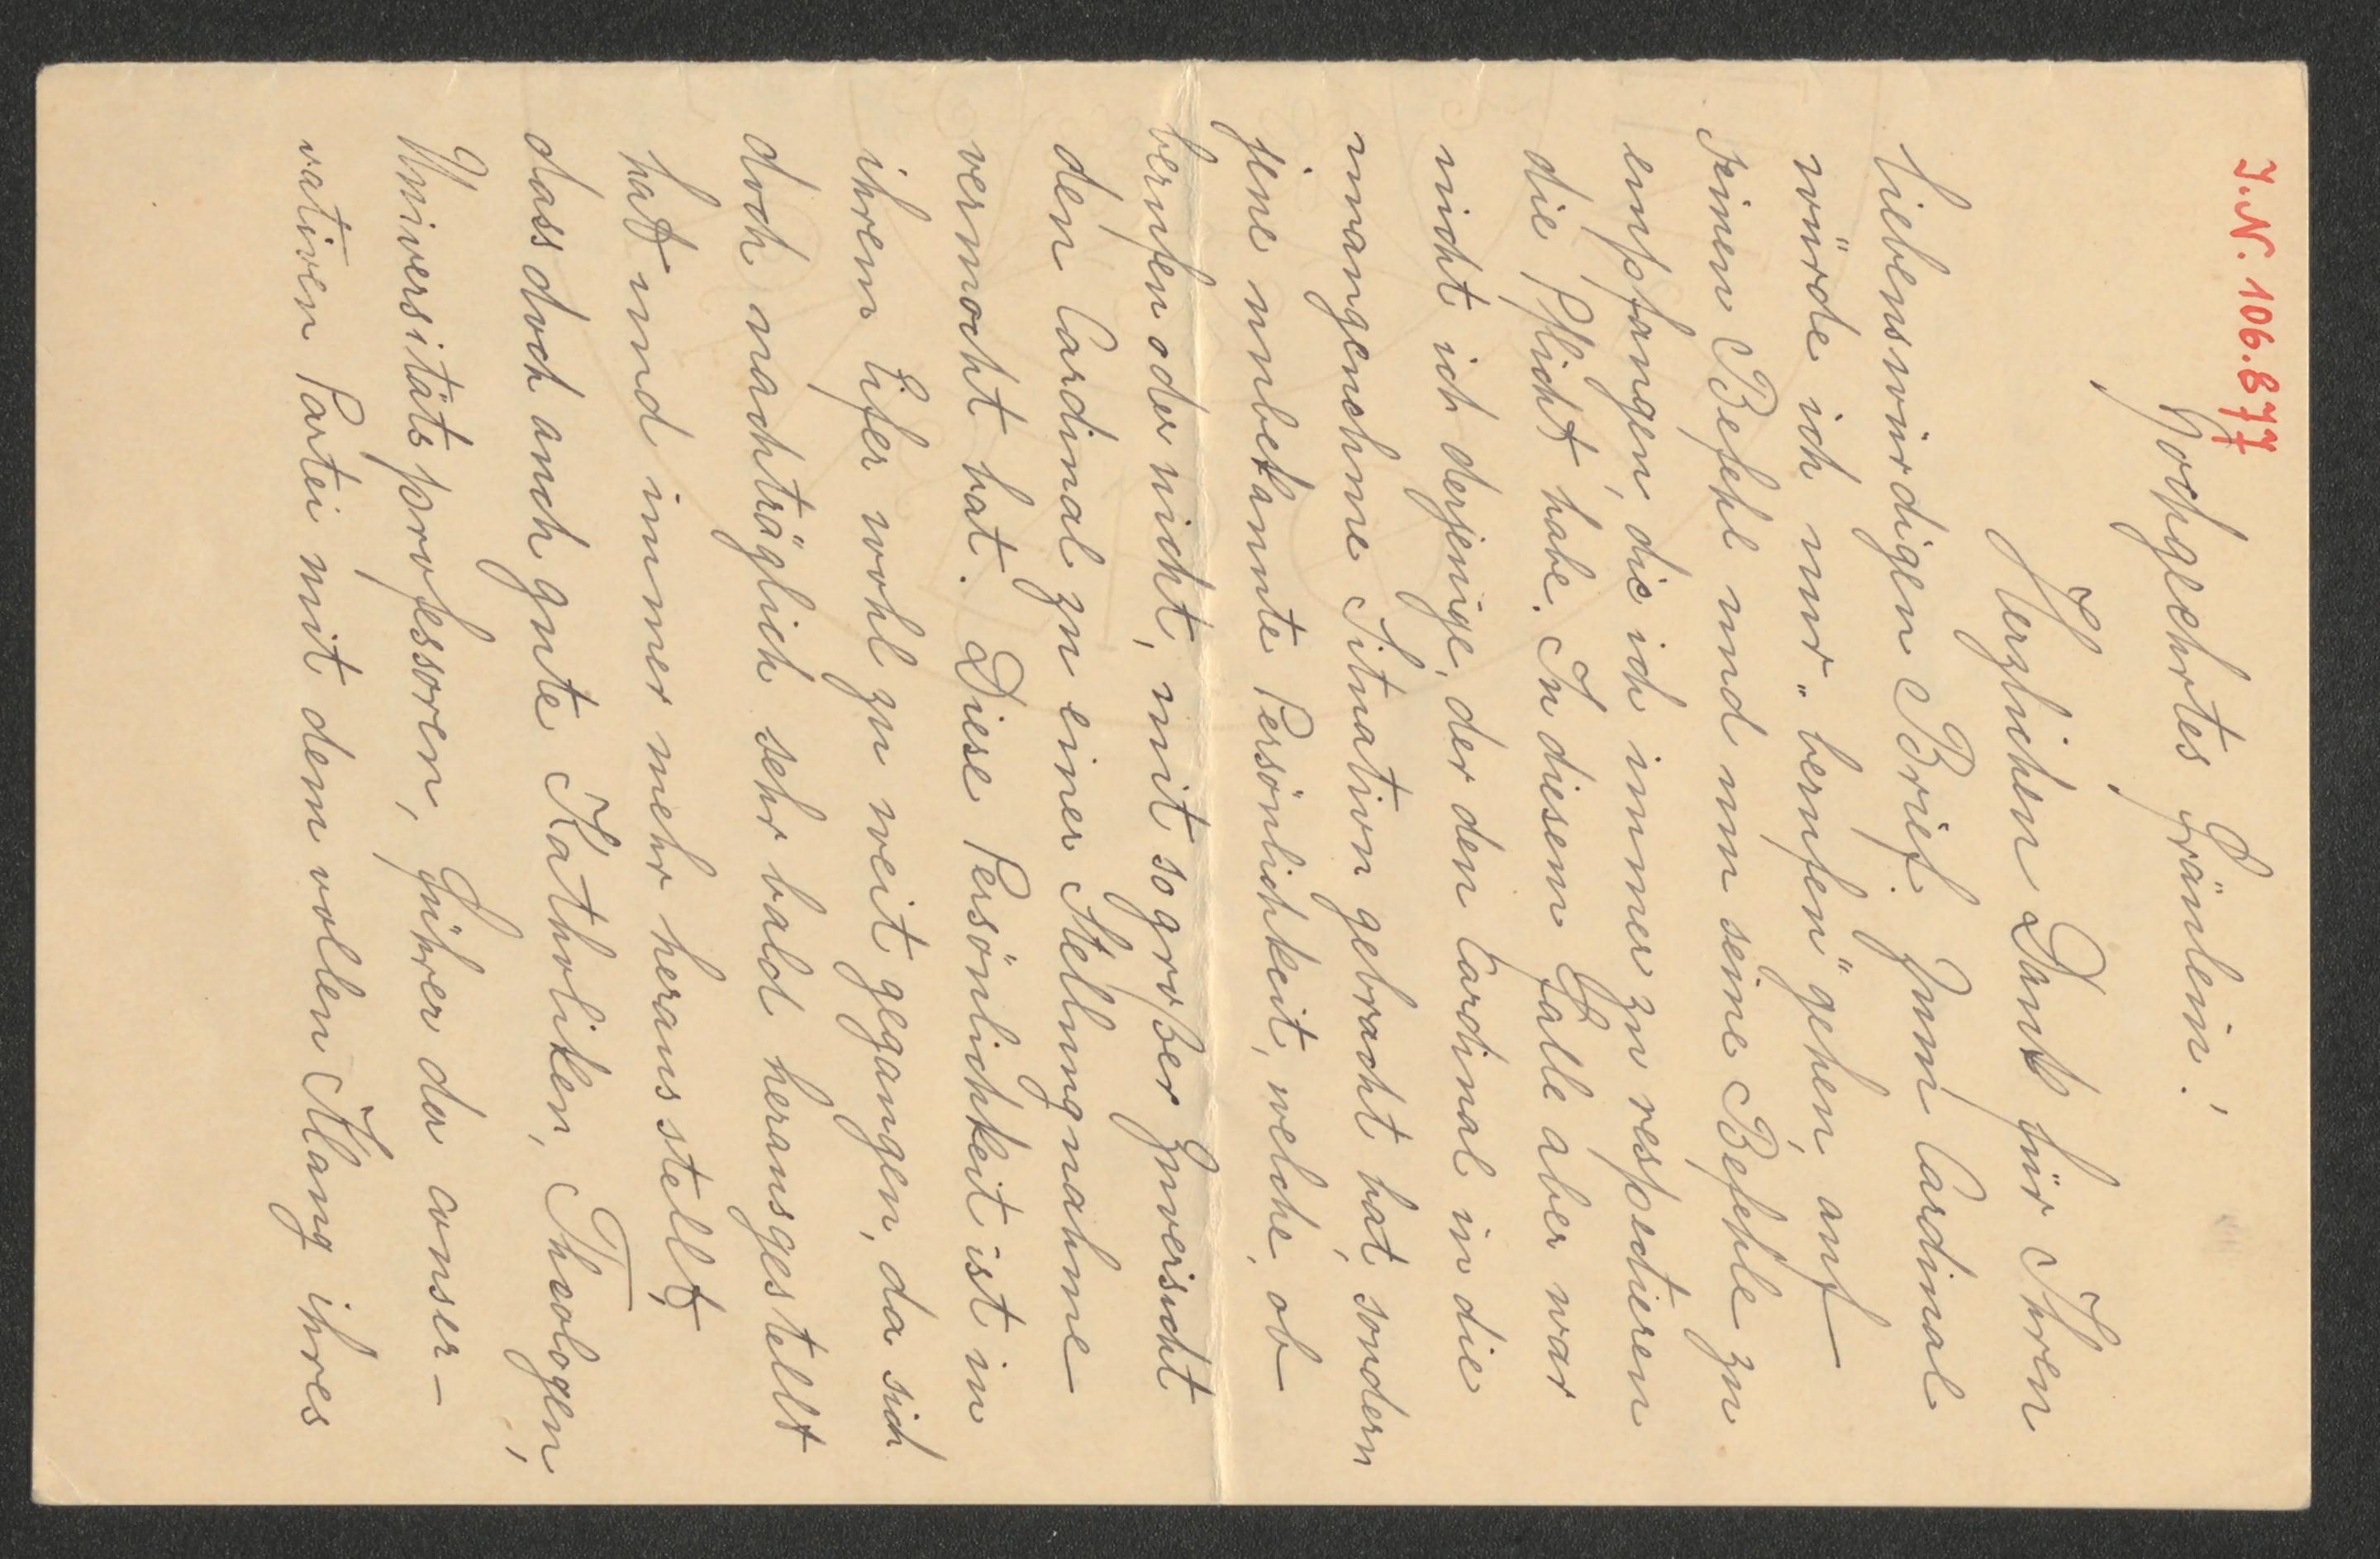 J.N. 106.877
Hochgeehrtes Fräulein!
Herzlichen Dank für Ihren
liebenswürdigen Brief. Zum Cardinal
würde ich nur „berufen" gehen, auf
seinen Befehl und um seine Befehle zu
empfangen, die ich immer zu respectieren
die Pflicht habe. In diesem Falle aber war
nicht ich derjenige, der den Cardinal in die
unangenehme Situation gebracht hat, sondern
jene unbekannte Persönlichkeit, welche, ob
berufen oder nicht, mit so großer Zuversicht
den Cardinal zu einer Stellungnahme
vermocht hat. Diese Persönlichkeit ist in
ihrem Eifer wohl zu weit gegangen, da sich
doch nachträglich sehr bald herausgestellt
hat und immer mehr herausstellt,
dass doch auch gute Katholiken, Theologen,
Universitätsprofessoren, Führer der conser-
vativen Partei mit dem vollen Klang ihres